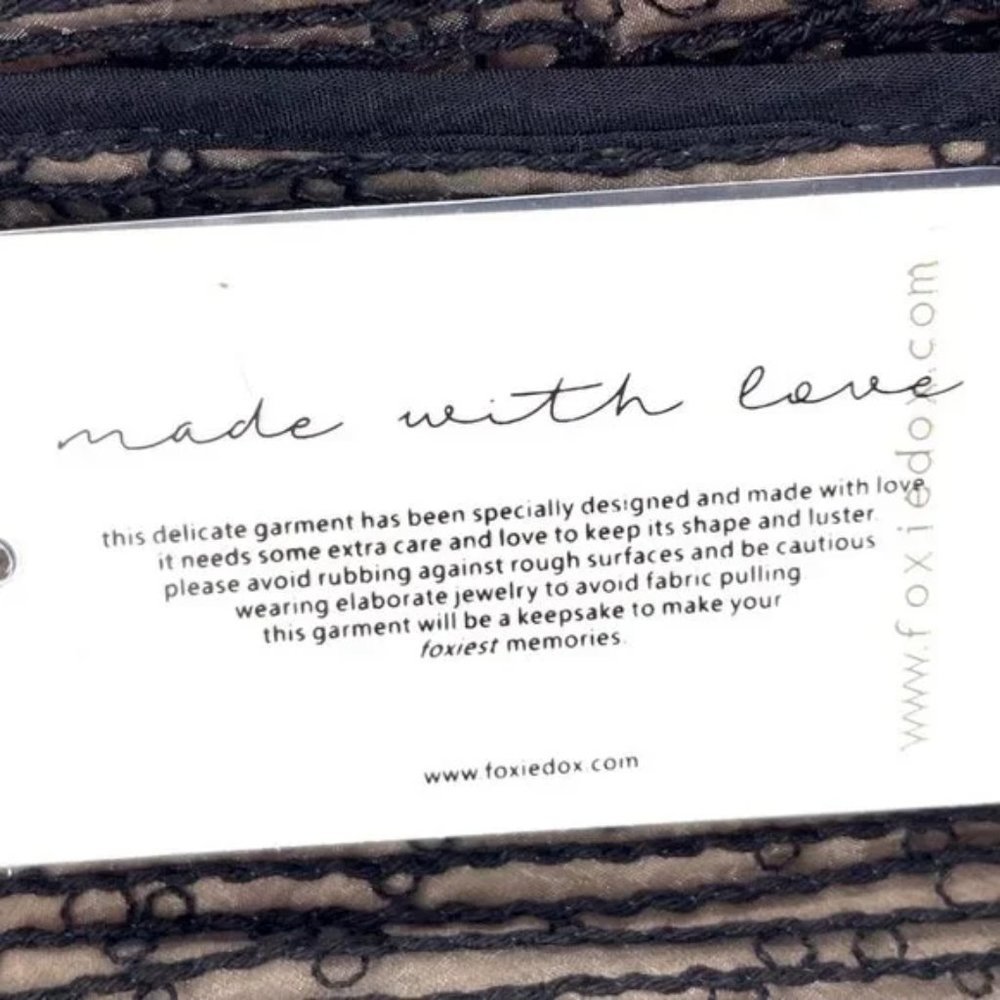 made with love
this delicate garment has been specially designed and made with love
it needs some extra care and love to keep its shape and luster.
please avoid rubbing against rough surfaces and be cautious
wearing elaborate jewelry to avoid fabric pulling
this garment will be a keepsake to make your
foxiest memories.
www.foxiedox.com
www.foxiedox.com